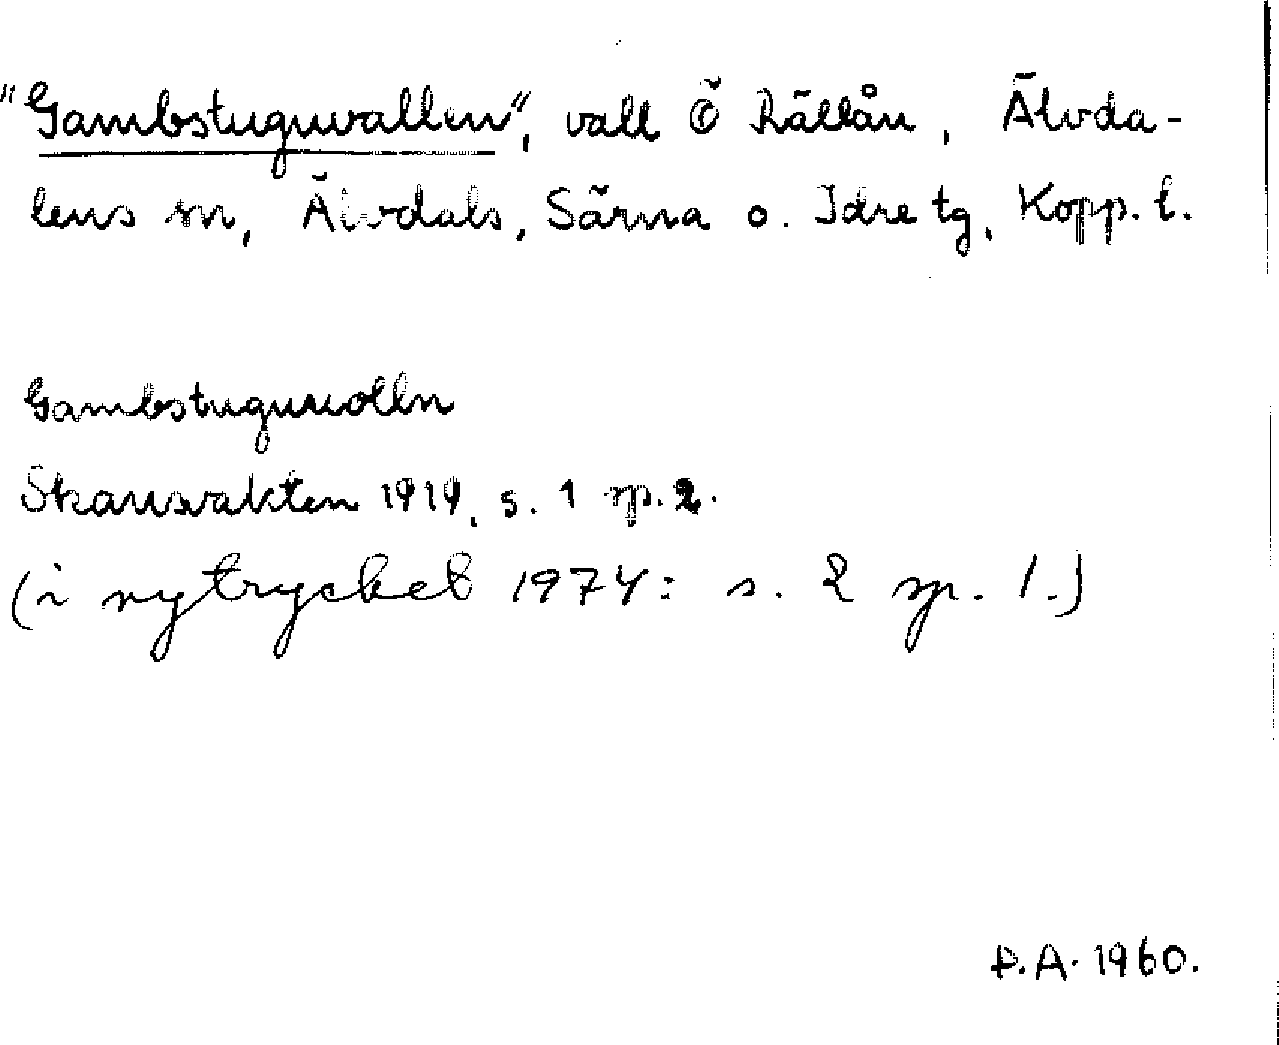 "Gambstuguvallen", vall Ö Rällån, Älvda-
lens sn, Älvdals, Särna o. Idre tg, Kopp. l.
Gambstuguvolln
Skansvakten 1919, s. 1 sp. 2.
(i nytrycket 1974: s. 2 sp. 1.)
D.A. 1960.